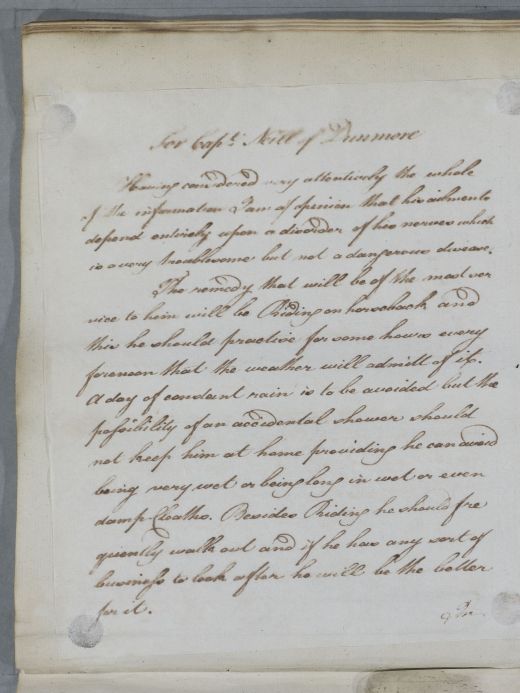 For Capt. Nill of Dunmore
Having considered very attentively the whole
of the information I am of opinion that his ailments
depend entirely upon a disorder of his nerves which
is a very troublesome but not a dangerous disease.
The remedy that will be of the most ser
vice to him will be Riding on horseback and
this he should practise for some hours every
forenoon that the weather will admitt of it.
A day of constant rain is to be avoided but the
possibility of an accidental shower should
not keep him at home providing he can avoid
being very wet or being long in wet or even
damp Cloaths. Besides Riding he should fre
quently walk out and if he has any sort of
bussiness to look after he will be the better
for it.